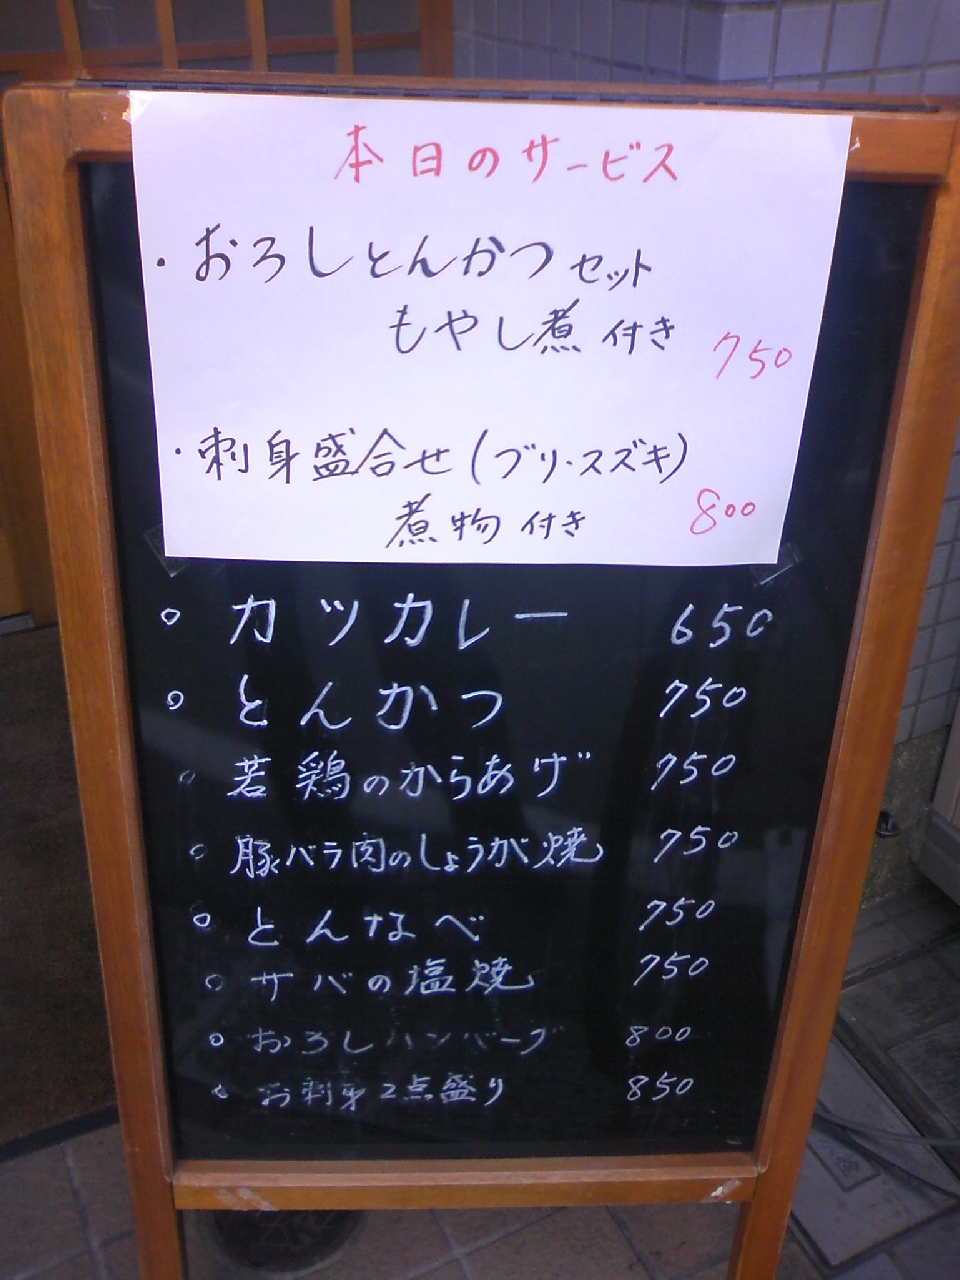 本日のサービス
・おろしとんかつセット
もやし煮付き 750
・刺身盛合せ(ブリ・スズキ)
煮物付き 800
○ カツカレー 650
○ とんかつ 750
○ 若鶏のからあげ 750
○ 豚バラ肉のしょうが焼 750
○ とんなべ 750
○ サバの塩焼 750
○ おろしハンバーグ 800
○ お刺身2点盛り 850